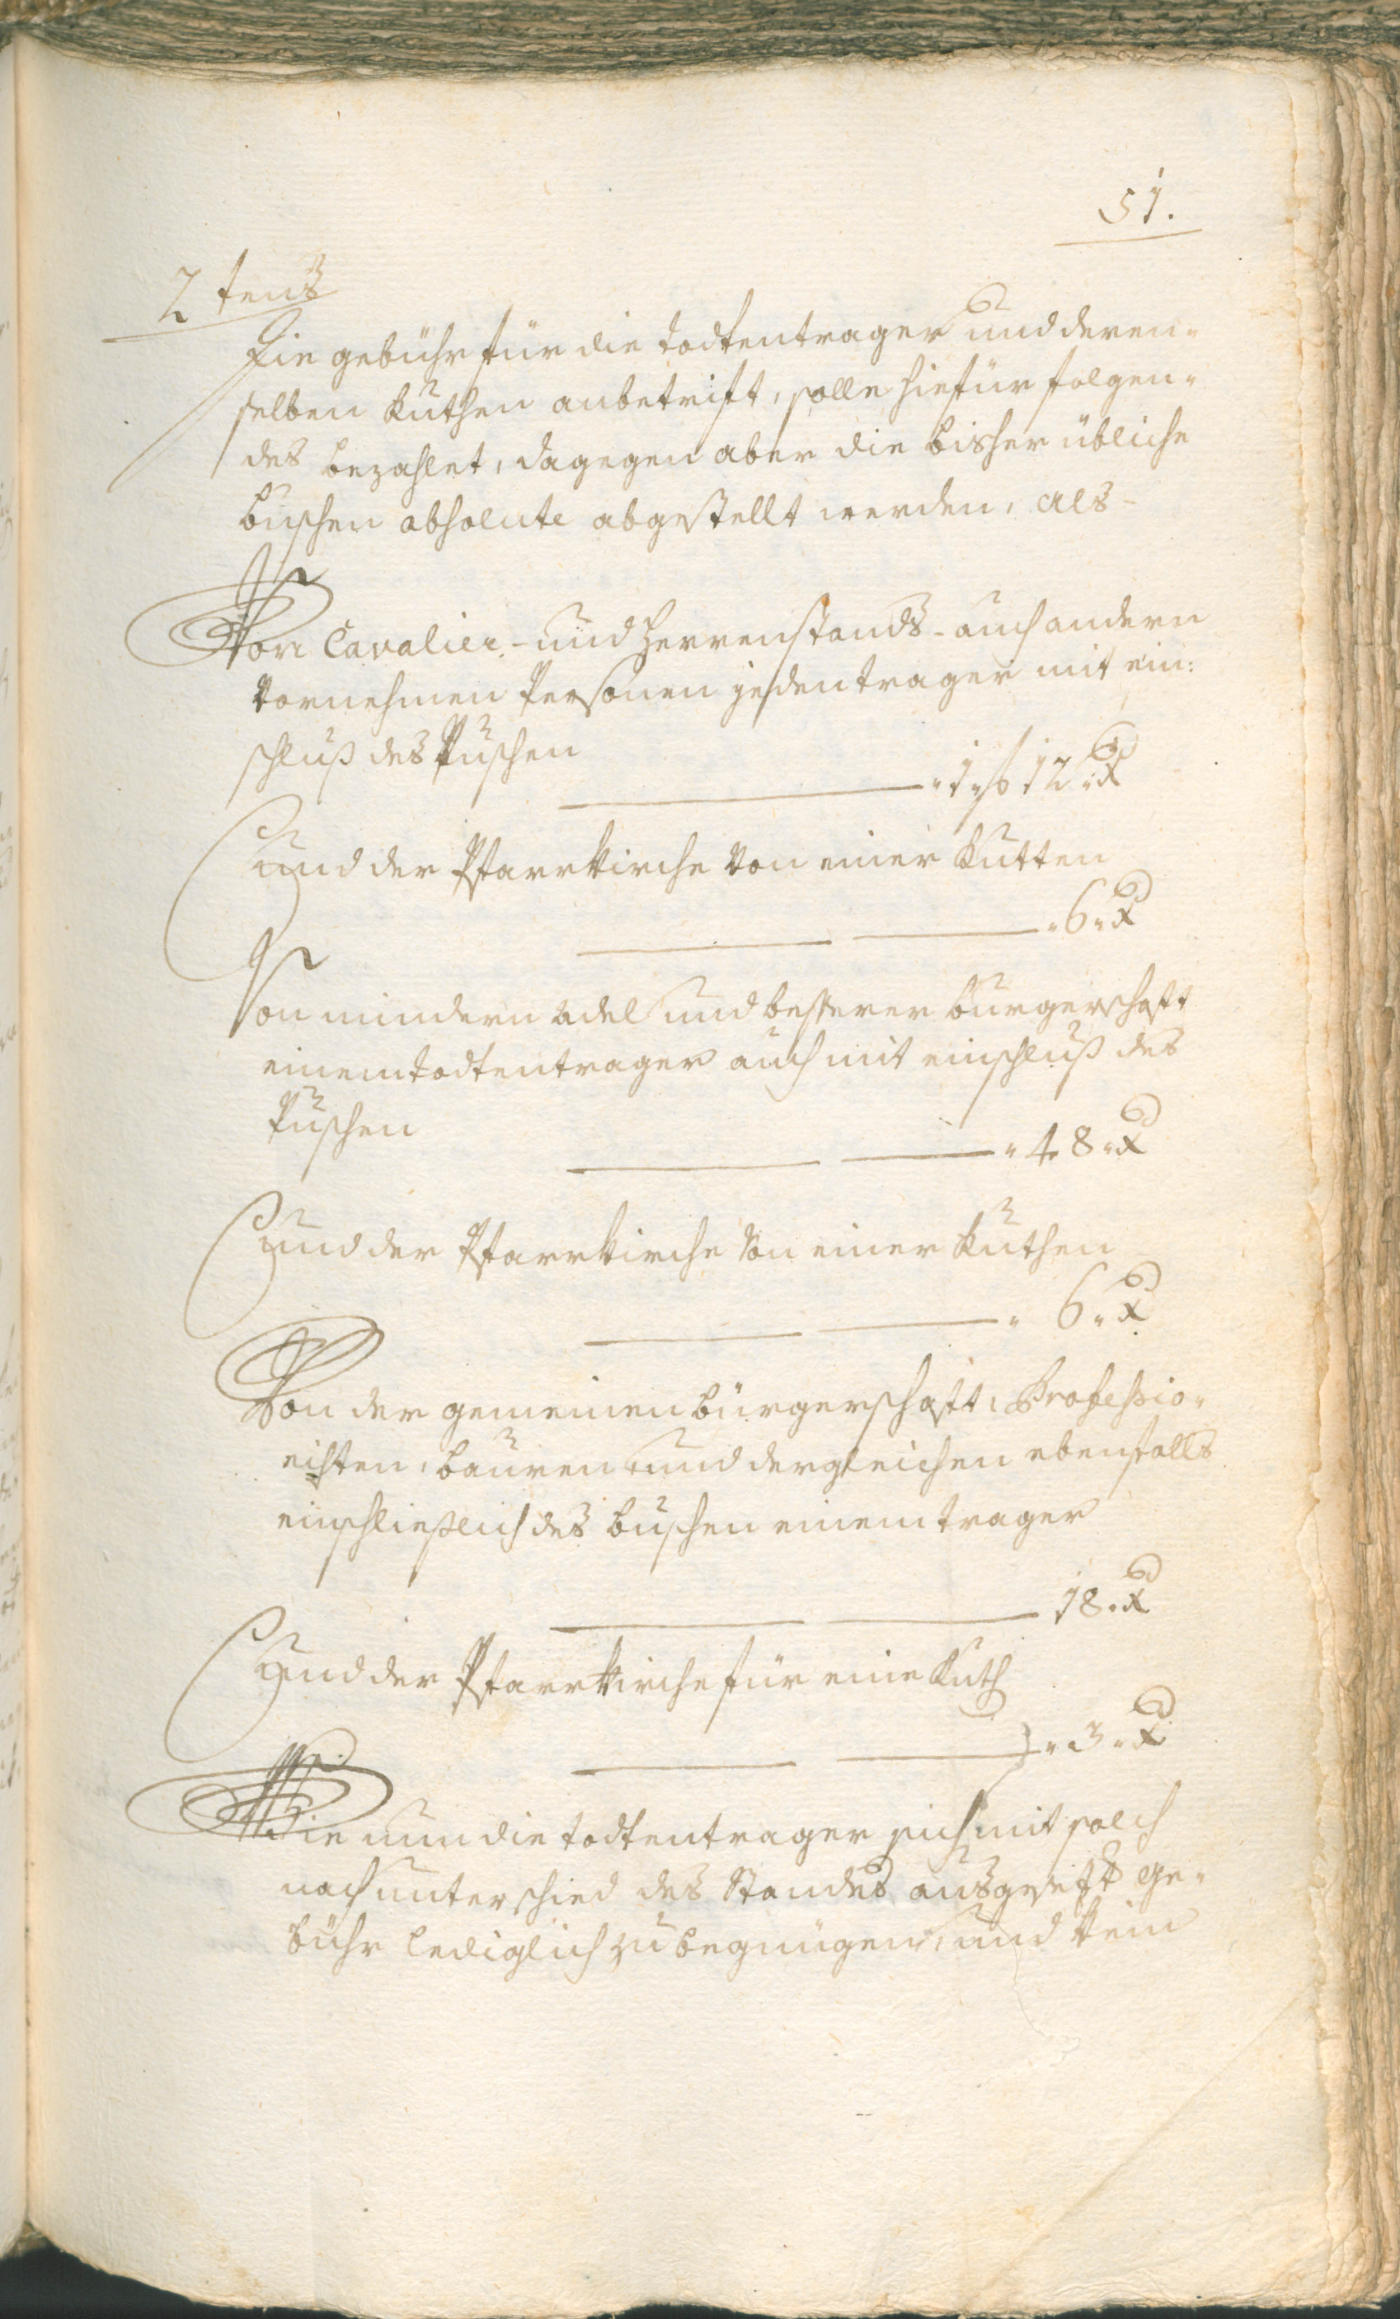 51.
2 tens
Die gebühr für die Todtentrager und deren-
selben Kuthen anbetrift, solle hiefür folgen-
des bezahlet, dagegen aber die bisher übliche
buschen absolute abgestellt werden, als-
Von Cavalier- und Herrenstands- auch andern
Vornehmen Personen jeden trager mit ein:
schluß des Puschen
1 f 12 x
Und der Pfarrkirche Von einer Kutten
6 x
Von mindern Adel und besserer burgerschaft
einem todtentrager auch mit einschluß des
Puschen
48 x
Und der Pfarrkirche Von einer Kuthen
6 x
Von der gemeinen bürgerschaft, Professio-
nisten, bauren und dergleichen ebenfalls
einschließlich des buschen einem trager
18 x
Und der Pfarrkirche für eine Kuth
3 x
Wie nun die todtentrager sich mit solch
nach unterschied des Standes ausgesetzt ge-
bühr lediglich zu begnügen, und kein